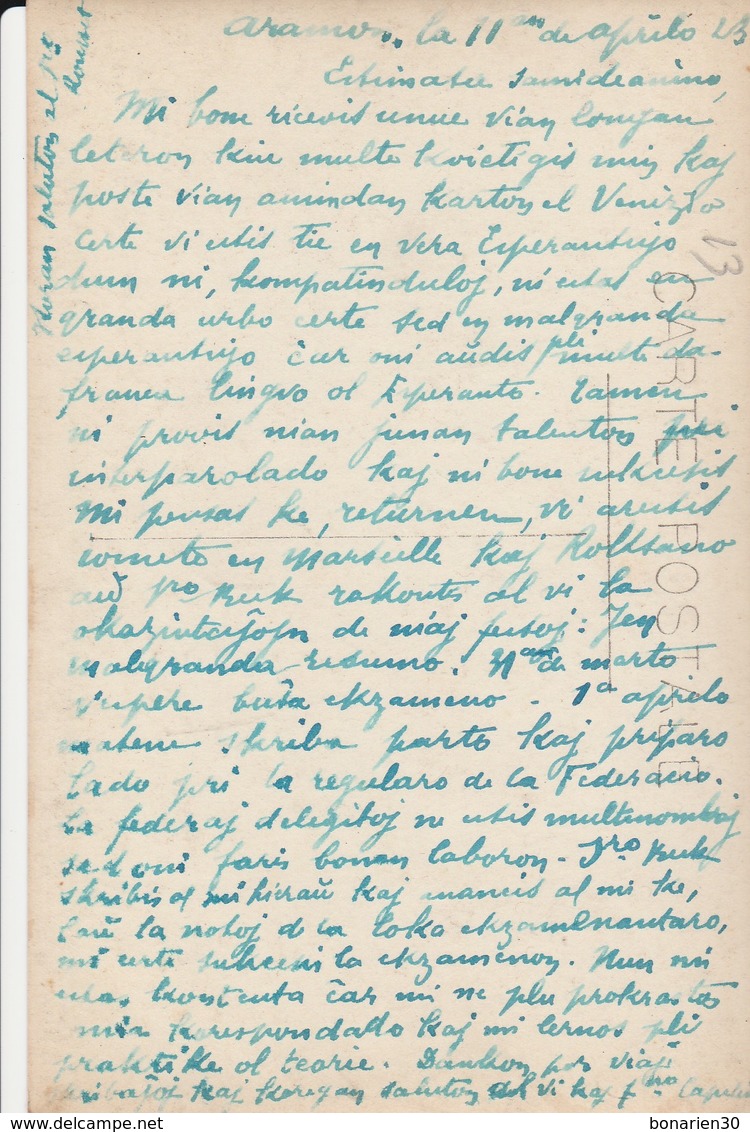 Aramon, la 11an de aprilo 23
Estimata samideanino,
Mi bone ricevis unue vian longan
leteron kiu multe kvietigis min kaj
poste vian amindan karton el Venizio
Certe vi estis tie en vera Esperantujo
dum ni, kompatinduloj, ni estas en
granda urbo certe sed en malgranda
esperantujo ĉar oni aŭdis pli multe da
franca lingvo ol Esperanto. Tamen
ni provis nian junan talenton pri
interparolado kaj ni bone sukcesis
Mi pensas ke, returnen, vi arestis
en Marseille kaj Rolksano
aŭ pro Ruk rakontis al vi la
okazintaĵojn de niaj festoj: Jen
malgranda resumo. 31an de marto
vespere buŝa ekzameno. 1a aprilo
matene skriba parto kaj priparo
lado pri la regularo de la Federacio.
La federaj delegitoj ne estis multenombraj
sed oni faris bonan laboron. Sro Ruk
skribis al mi hieraŭ kaj al mi ke,
laŭ la notoj de la loka ekzamenantaro,
mi certe sukcesis la ekzamenon. Nun mi
estas kontenta ĉar mi ne plu prokrastos
mian korespondado kaj mi lernos pli
praktike ol teorie. Dankon por viaj
skribaĵoj kaj koregan saluton al vi kaj
Koran saluton al
CARTE POSTALE
13
bonarien30